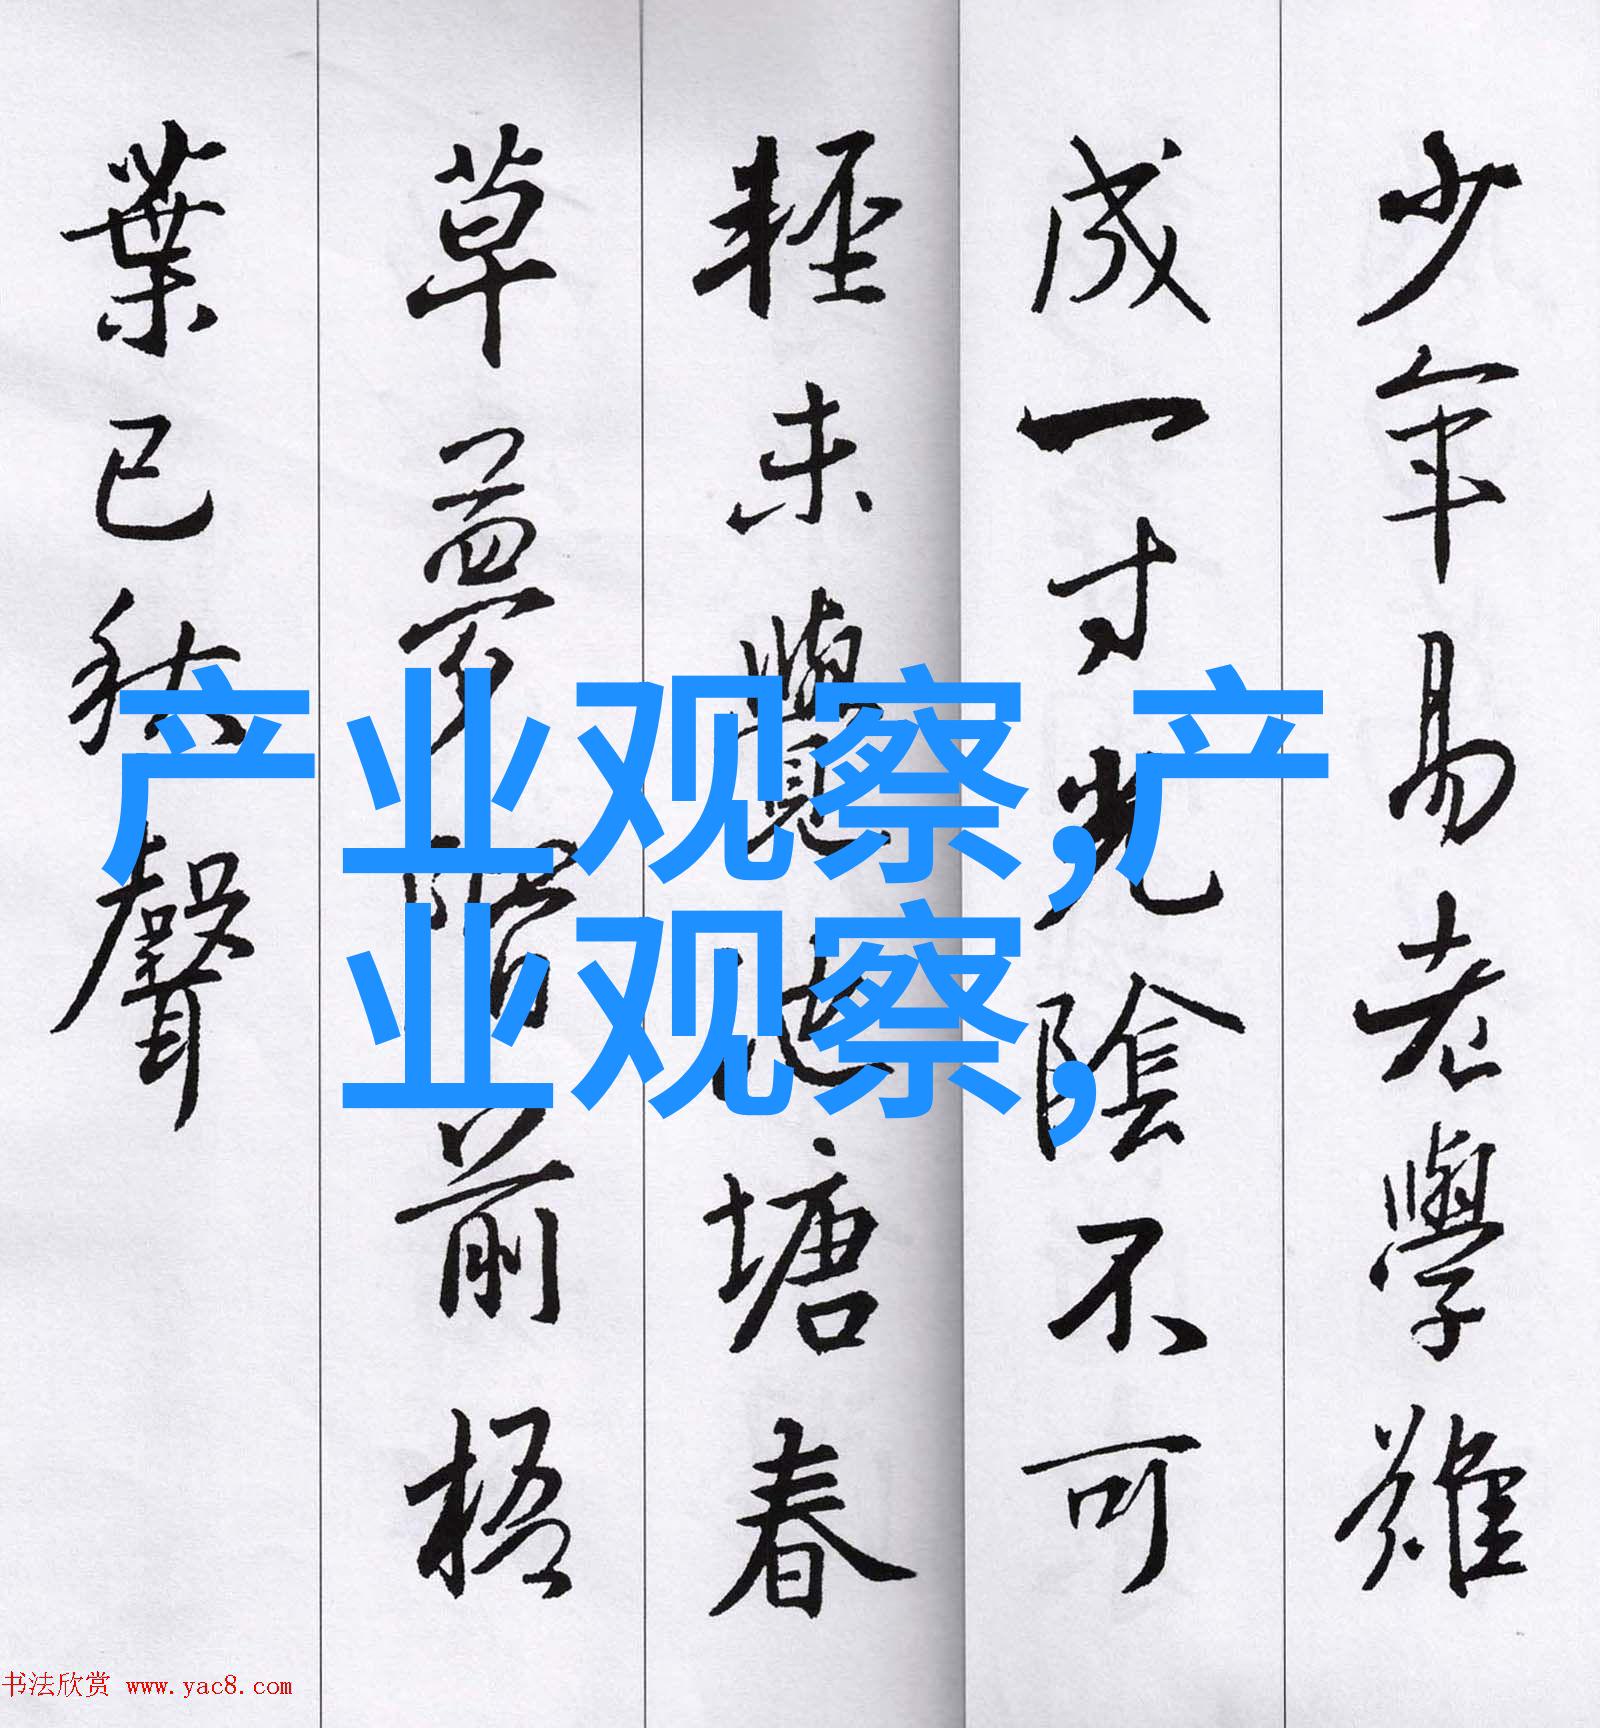 少年易老學難
成一寸光陰不可
輕未覺池塘春
草夢階前梧
葉已秋聲
产业观察,产
业观察,
书法欣赏 www.yac8.com